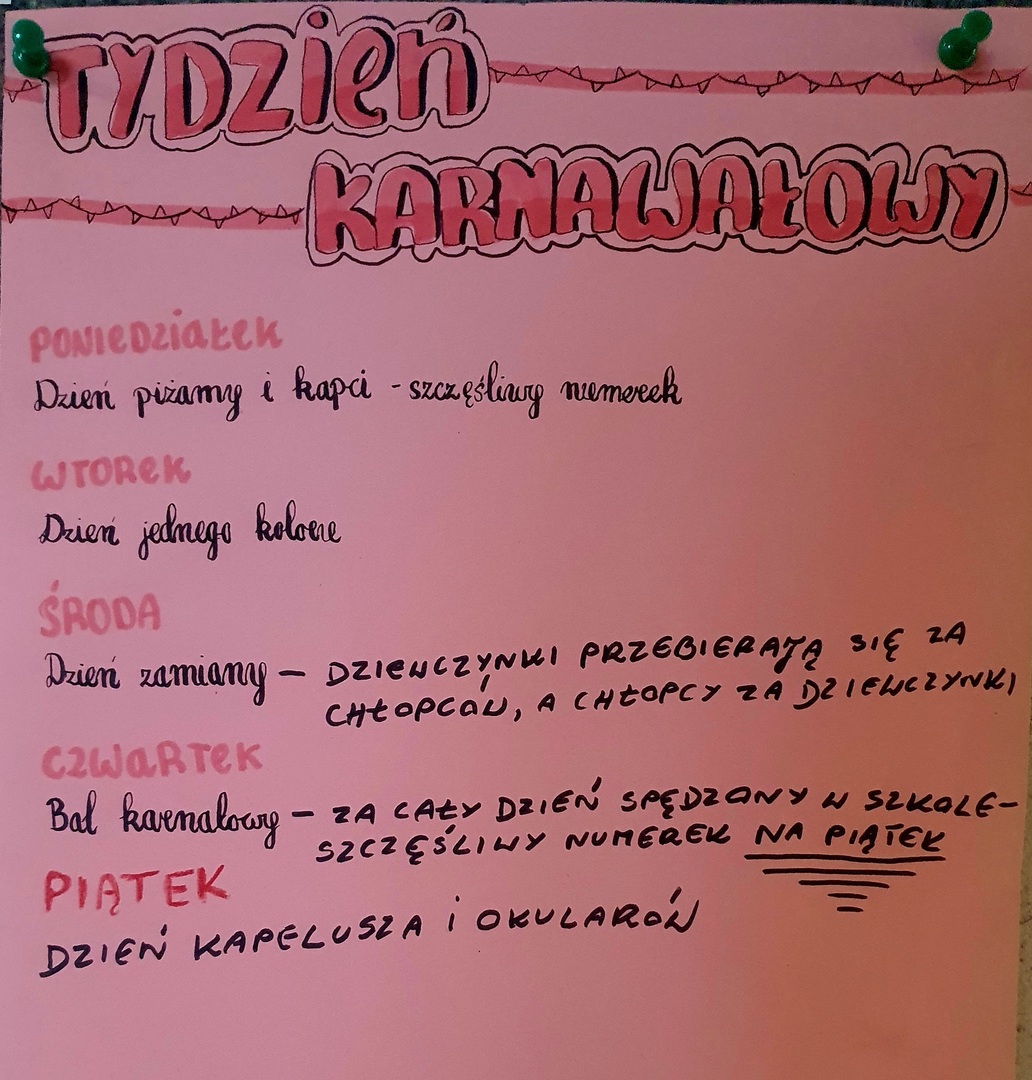 TYDZień
KARNAWAŁOWY
PONIEDZIAŁEK
Dzień piżamy i kapci - szczęśliwy numerek
WTOREK
Dzień jednego koloru
ŚRODA
Dzień zamiany – DZIEWCZYNKI PRZEBIERAJĄ SIĘ ZA
CHŁOPCÓW, A CHŁOPCY ZA DZIEWCZYNKI
CZWARTEK
Bal karnałowy – ZA CAŁY DZIEŃ SPĘDZONY W SZKOLE –
SZCZĘŚLIWY NUMEREK NA PIĄTEK
PIĄTEK
DZIEŃ KAPELUSZA i OKULARÓW